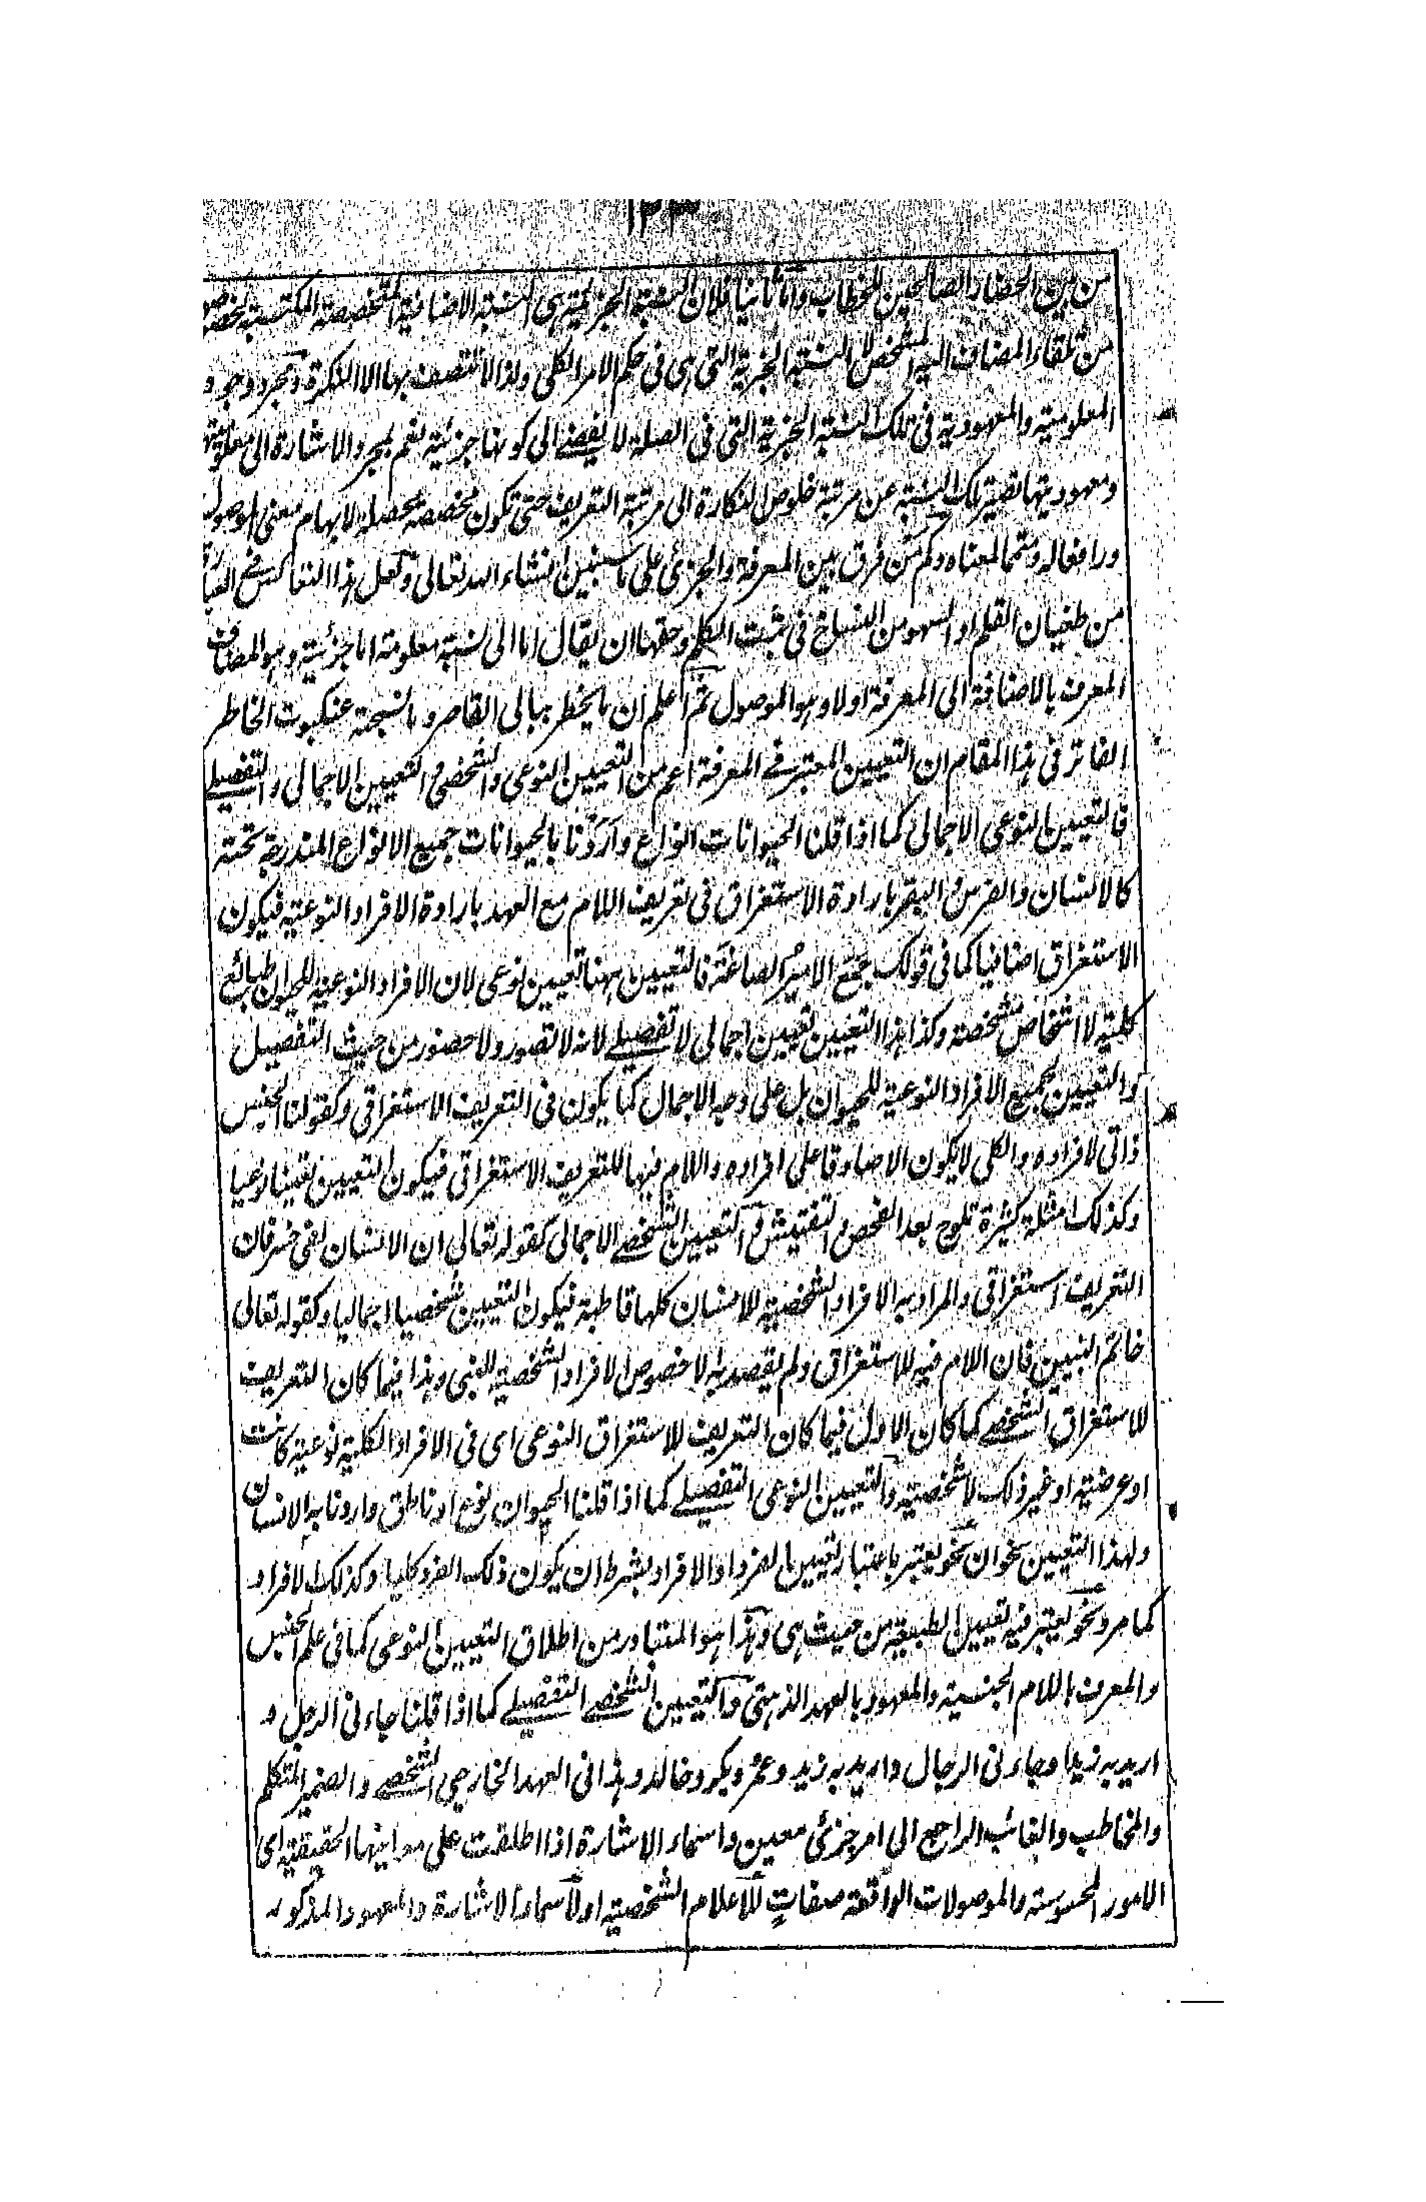 من بين الحضار الصالحين للخطاب واما ثانيا فلان النسبة الجزئية هى النسبة الاضافية المتخصصة المكتسبة
من تلقاء المضاف اليه المشخص لا النسبة الخبرية التى هى فى حكم الامر الكلى ولذا لا تتصف بها الا النكرة ومجرد وجود
المعلومية والمعهودية فى تلك النسبة الخبرية التى فى الصلة لا يفضى الى كونها جزئية نعم لمجرد الاشارة الى معلوميتها
ومعهوديتها تصير تلك النسبة عن مرتبة خلوص النكارة الى مرتبة التعريف حتى تكون مخصصة محصلة لابهام معنى الموصول
ورافعا له ومتمما لمعناه وكم من فرق بين المعرفة والجزئى على ما سنبين انشاء الله تعالى ولعل هذا
من طغيان القلم او السهو من النساخ فى ثبت الكلم وحقها ان يقال اما الى نسبة معلومة اما جزئية وهو المضاف
المعرف بالاضافة الى المعرفة اولا وهو الموصول ثم اعلم ان ما يخطر ببالى القاصر وما نسجته عنكبوت الخاطر
الفاتر فى هذا المقام ان التعيين المعتبر فى المعرفة اعم من التعيين النوعى والشخصى والتعيين الاجمالى والتفصيلى
فالتعيين النوعى الاجمالى كما اذا قلنا الحيوانات انواع واردنا بالحيوانات جميع الانواع المندرجة تحته
كالانسان والفرس والبقر بارادة الاستغراق فى تعريف اللام مع العهد بارادة الافراد النوعية فيكون
الاستغراق اضافيا كما فى قولك جمع الامير الصاغة فالتعيين ههنا تعيين نوعى لان الافراد النوعية للحيوان طبائع
كلية لا اشخاص مشخصة وكذا هذا التعيين تعيين اجمالى لا تفصيلى لانه لا تصور ولا حضور من حيث التفصيل
والتعيين لجميع الافراد النوعية للحيوان بل على وجه الاجمال كما يكون فى التعريف الاستغراقى وكقولنا الجنس
ذاتى لافراده والكلى لا يكون الا صادقا على افراده واللام فيها للتعريف الاستغراقى فيكون التعيين تعيينا نوعيا
وكذلك امثلة كثيرة تلوح بعد الفحص والتفتيش والتعيين الشخصى الاجمالى كقوله تعالى ان الانسان لفى خسر فان
التعريف استغراقى والمراد به الافراد الشخصية للانسان كلها قاطبة فيكون التعيين شخصيا اجماليا وكقوله تعالى
خاتم النبيين فان اللام فيه للاستغراق ولم يقصد به الا خصوص الافراد الشخصية للنبى وهذا فيما كان التعريف
للاستغراق الشخصى كما كان الاول فيما كان التعريف للاستغراق النوعى اى فى الافراد الكلية نوعية كانت
او عرضية او غير ذلك لا شخصية والتعيين النوعى التفصيلى كما اذا قلنا الحيوان نوع او ناطق واردنا به الانسان
ولهذا التعيين نحوان نحو يعتبر باعتبار تعيين الفرد او الافراد بشرط ان يكون ذلك الفرد كليا وكذلك الافراد
كما مر ونحو يعتبر فيه تعيين الطبيعة من حيث هى وهذا هو المتبادر من اطلاق التعيين النوعى كما فى علم الجنس
والمعرف باللام الجنسية والمعهود بالعهد الذهنى والتعيين الشخصى التفصيلى كما اذا قلنا جاءنى الرجل و
اريد به زيدا وجاءنى الرجال واريد به زيد وعمر وبكر وخالد وهذا فى العهد الخارجى الشخصى والضمير المتكلم
والمخاطب والغائب الراجع الى امر جزئى معين واسماء الاشارة اذا اطلقت على معانيها الحقيقية اى
الامور المحسوسة والموصولات الواقعة صفات للاعلام الشخصية او لاسماء الاشارة والمعهود المذكور